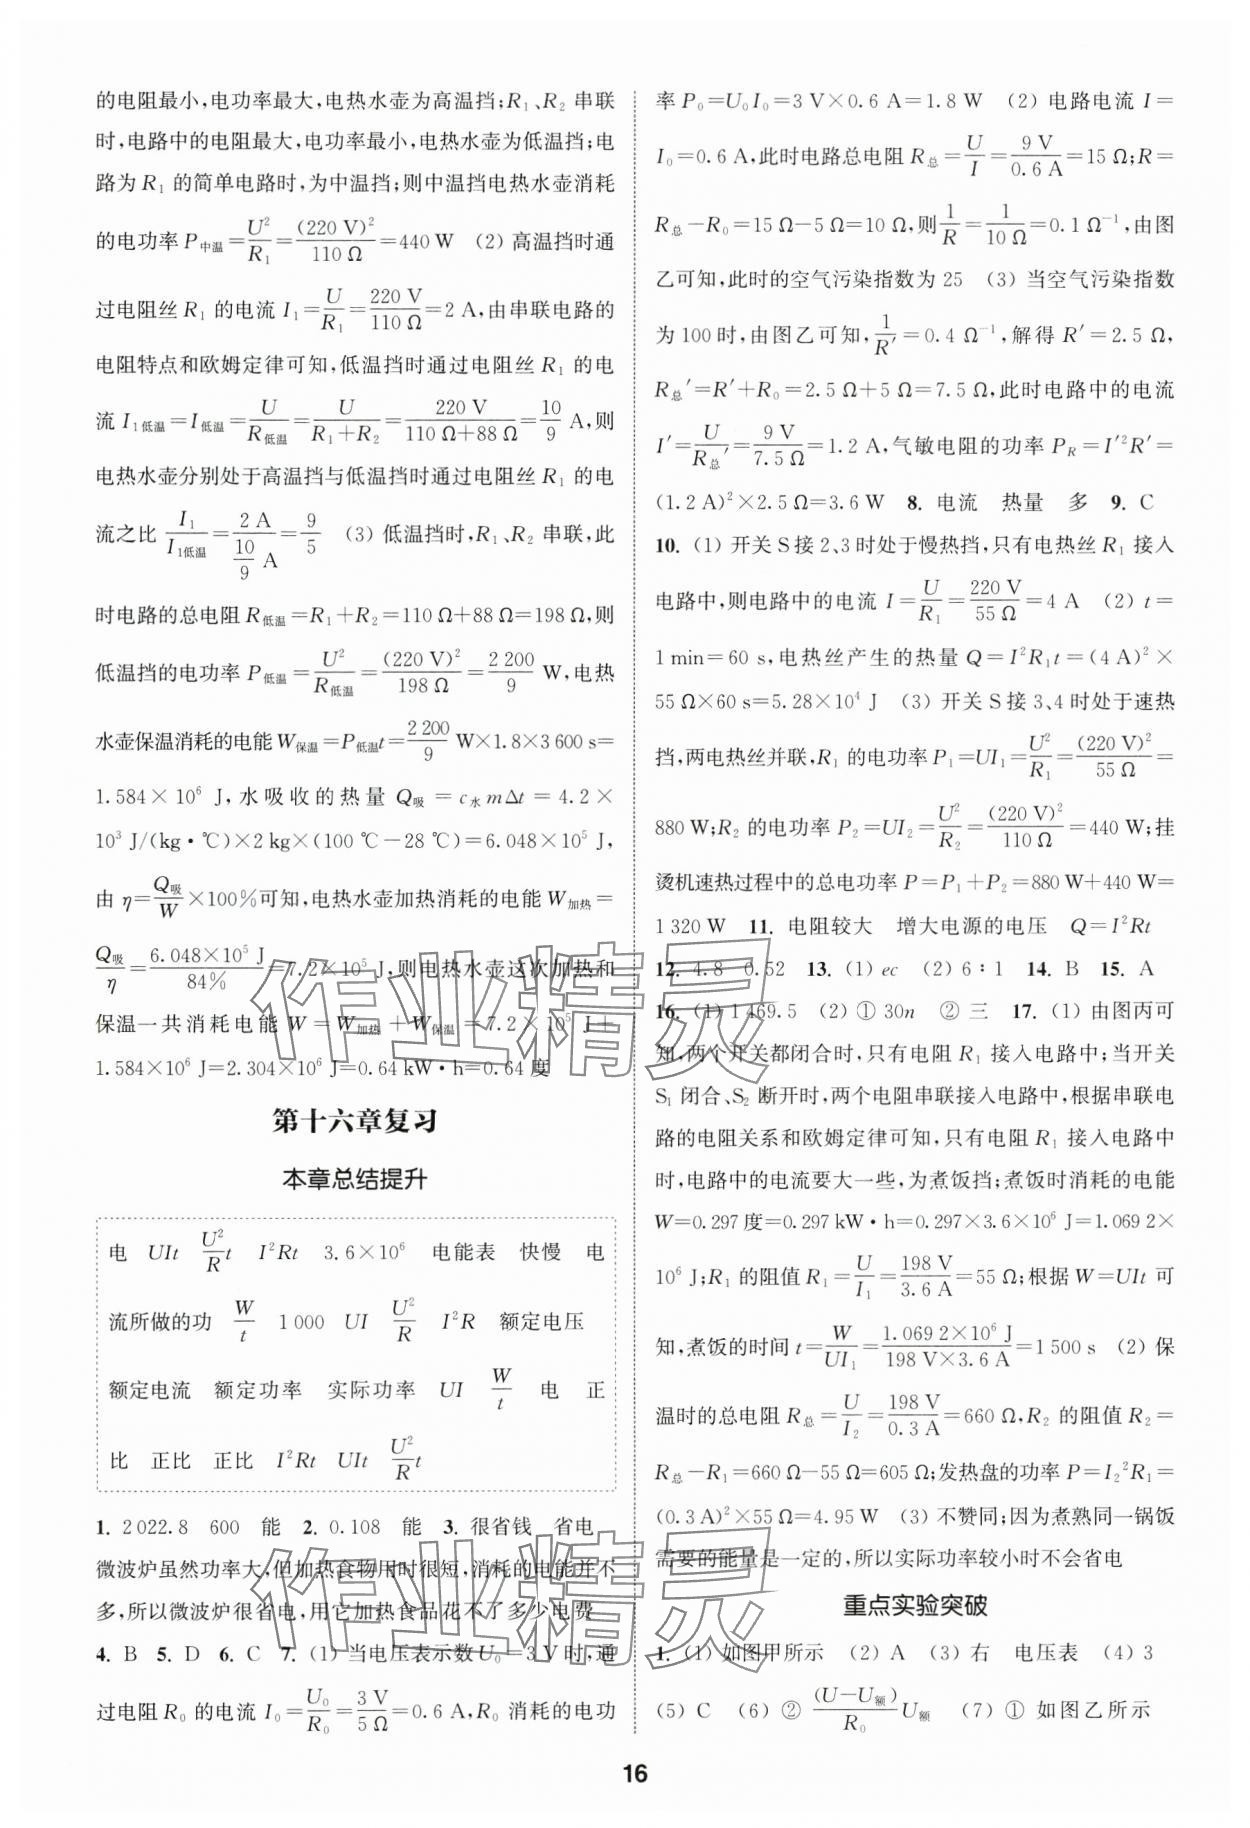 的电阻最小,电功率最大,电热水壶为高温挡;R₁、R₂ 串联
时,电路中的电阻最大,电功率最小,电热水壶为低温挡;电
路为 R₁ 的简单电路时,为中温挡;则中温挡电热水壶消耗
的电功率 P中温=U²/R₁=(220 V)²/110 Ω=440 W (2) 高温挡时通
过电阻丝 R₁ 的电流 I₁=U/R₁=220 V/110 Ω=2 A,由串联电路的
电阻特点和欧姆定律可知,低温挡时通过电阻丝 R₁ 的电
流 I₁低温=I低温=U/R低温=U/(R₁+R₂)=220 V/(110 Ω+88 Ω)=10/9 A,则
电热水壶分别处于高温挡与低温挡时通过电阻丝 R₁ 的电
流之比 I₁/I₁低温=2 A/(10/9 A)=9/5 (3) 低温挡时,R₁、R₂ 串联,此
时电路的总电阻 R低温=R₁+R₂=110 Ω+88 Ω=198 Ω,则
低温挡的电功率 P低温=U²/R低温=(220 V)²/198 Ω=2 200/9 W,电热
水壶保温消耗的电能 W保温=P低温t=2 200/9 W×1.8×3 600 s=
1.584×10⁶ J,水吸收的热量 Q吸=c水mΔt=4.2×
10³ J/(kg·℃)×2 kg×(100 ℃-28 ℃)=6.048×10⁵ J,
由 η=Q吸/W×100%可知,电热水壶加热消耗的电能 W加热=
Q吸/η=6.048×10⁵ J/84%=7.2×10⁵ J,则电热水壶这次加热和
保温一共消耗电能 W=W加热+W保温=7.2×10⁵ J+
1.584×10⁶ J=2.304×10⁶ J=0.64 kW·h=0.64 度
第十六章复习
本章总结提升
电 UIt U²/R t I²Rt 3.6×10⁶ 电能表 快慢 电
流所做的功 W/t 1 000 UI U²/R I²R 额定电压
额定电流 额定功率 实际功率 UI W/t 电 正
比 正比 正比 I²Rt UIt U²/R t
1. 2 022.8 600 能 2. 0.108 能 3. 很省钱 省电
微波炉虽然功率大,但加热食物用时很短,消耗的电能并不
多,所以微波炉很省电,用它加热食品花不了多少电费
4. B 5. D 6. C 7. (1) 当电压表示数U₀=3 V时,通
过电阻 R₀ 的电流 I₀=U₀/R₀=3 V/5 Ω=0.6 A,R₀ 消耗的电功
率 P₀=U₀I₀=3 V×0.6 A=1.8 W (2) 电路电流 I=
I₀=0.6 A,此时电路总电阻 R总=U/I=9 V/0.6 A=15 Ω;R=
R总-R₀=15 Ω-5 Ω=10 Ω,则1/R=1/10 Ω=0.1 Ω⁻¹,由图
乙可知,此时的空气污染指数为 25 (3) 当空气污染指数
为 100 时,由图乙可知,1/R′=0.4 Ω⁻¹,解得 R′=2.5 Ω,
R总′=R′+R₀=2.5 Ω+5 Ω=7.5 Ω,此时电路中的电流
I′=U/R总′=9 V/7.5 Ω=1.2 A,气敏电阻的功率 P_R=I′²R′=
(1.2 A)²×2.5 Ω=3.6 W 8. 电流 热量 多 9. C
10. (1) 开关 S 接 2、3 时处于慢热挡,只有电热丝 R₁ 接入
电路中,则电路中的电流 I=U/R₁=220 V/55 Ω=4 A (2) t=
1 min=60 s,电热丝产生的热量 Q=I²R₁t=(4 A)²×
55 Ω×60 s=5.28×10⁴ J (3) 开关 S 接 3、4 时处于速热
挡,两电热丝并联,R₁ 的电功率 P₁=UI₁=U²/R₁=(220 V)²/55 Ω=
880 W;R₂ 的电功率 P₂=UI₂=U²/R₂=(220 V)²/110 Ω=440 W;挂
烫机速热过程中的总电功率 P=P₁+P₂=880 W+440 W=
1 320 W 11. 电阻较大 增大电源的电压 Q=I²Rt
12. 4.8 0.52 13. (1) ec (2) 6∶1 14. B 15. A
16. (1) 1 469.5 (2) ① 30n ② 三 17. (1) 由图丙可
知,两个开关都闭合时,只有电阻 R₁ 接入电路中;当开关
S₁ 闭合、S₂ 断开时,两个电阻串联接入电路中,根据串联电
路的电阻关系和欧姆定律可知,只有电阻 R₁ 接入电路中
时,电路中的电流要大一些,为煮饭挡;煮饭时消耗的电能
W=0.297 度=0.297 kW·h=0.297×3.6×10⁶ J=1.069 2×
10⁶ J;R₁ 的阻值 R₁=U/I₁=198 V/3.6 A=55 Ω;根据 W=UIt 可
知,煮饭的时间 t=W/UI₁=1.069 2×10⁶ J/(198 V×3.6 A)=1 500 s (2) 保
温时的总电阻 R总=U/I₂=198 V/0.3 A=660 Ω,R₂ 的阻值 R₂=
R总-R₁=660 Ω-55 Ω=605 Ω;发热盘的功率 P=I₂²R₁=
(0.3 A)²×55 Ω=4.95 W (3) 不赞同;因为煮熟同一锅饭
需要的能量是一定的,所以实际功率较小时不会省电
重点实验突破
1. (1) 如图甲所示 (2) A (3) 右 电压表 (4) 3
(5) C (6) ② (U-U额)/R₀ U额 (7) ① 如图乙所示
16
作业精灵
作业精灵